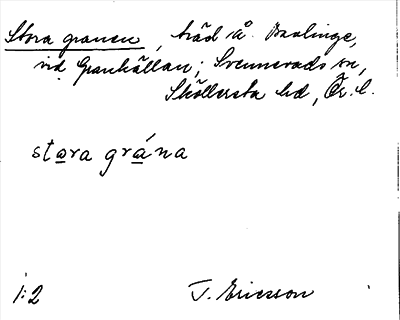 Stora granen, träd å Baslinge,
vid Granhällan; Svennevads sn,
Sköllersta hd, Ör. l.
stora grána
1:2 T. Ericsson